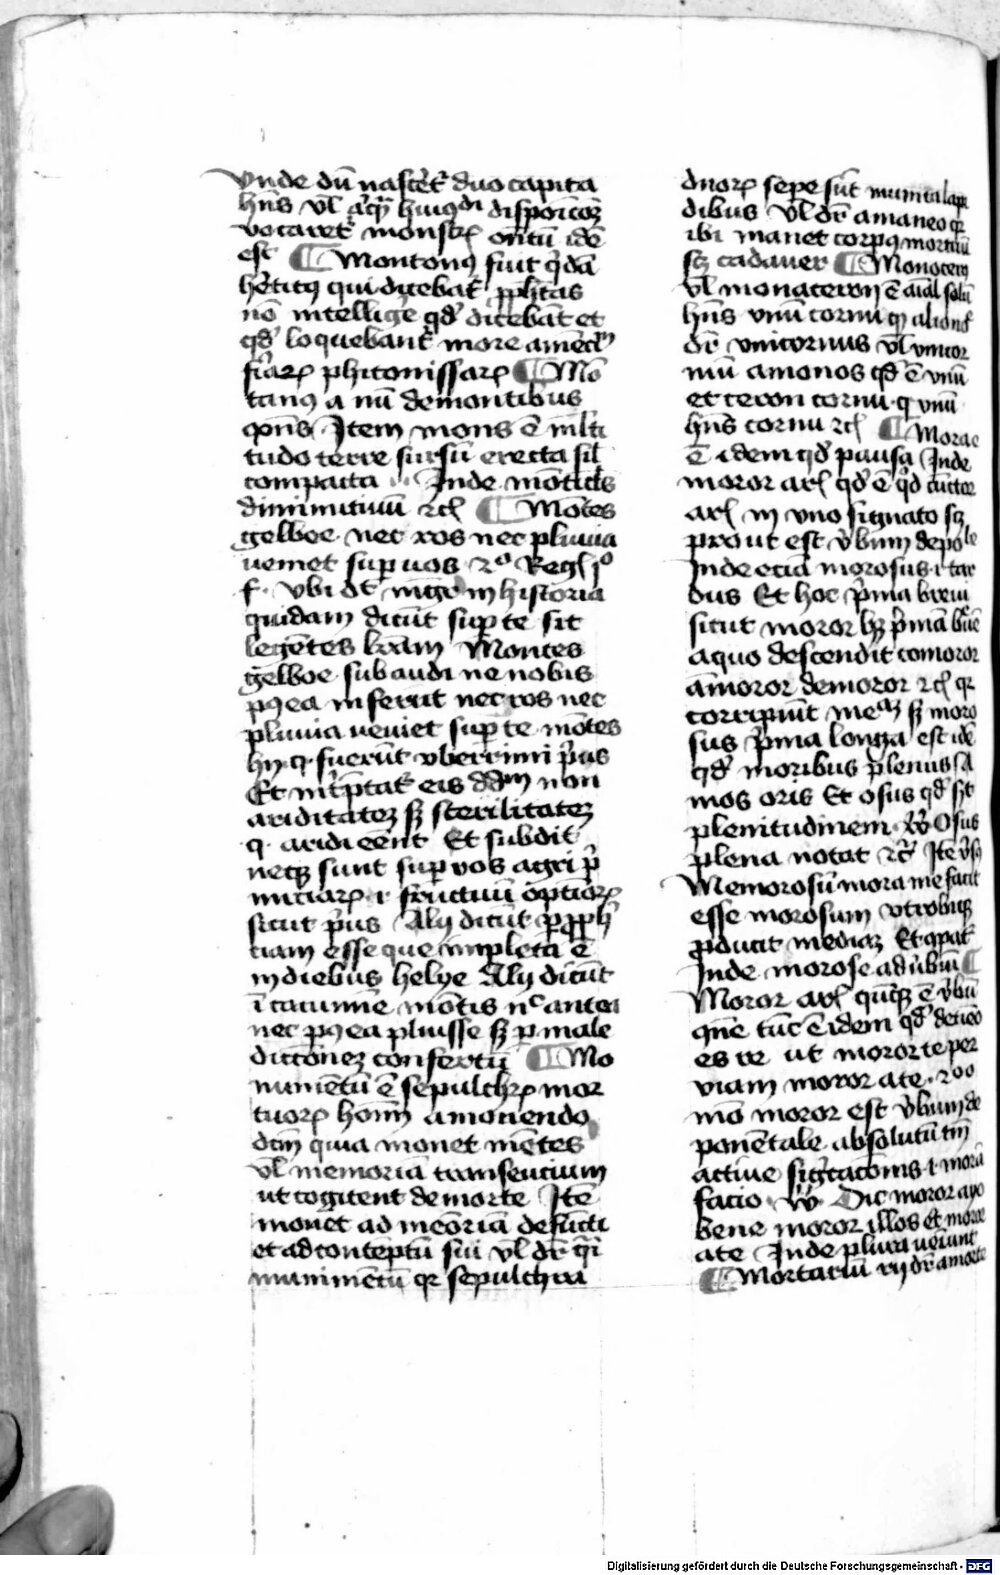 vnde dū nascēt᷑ duo capita
hn̄s vl̄ aꝗ hiꝰdi disponcōꝫ
vocaret᷑ monstrꝝ ontū idē
est ¶ Montonꝰ fuit qͥdā
he᷑tiꝰ qui dicebat᷑ ꝓph̄tas
nō intellige᷑ qd᷑ dicebāt et
qd᷑ loquebant᷑ more
phitonissarꝝ ¶ Mō
tanꝰ a um̄ demontibus
Item mons ē ml̄ti
tudo terre sursū erecta sil̄
compacta Inde mōticl̄s
diminutiuū ⁊cꝭ ¶ Mōtes
gelboe nec ros nec pluuia
ueniet suꝑ uos 2º Regꝭ pº
f. vbi dt̄ mg̅r in historia
quidam dicūt suꝑ te sit
legentes lr̄am Montes
gelboe subaudi ne nobis
pꝰea inferūt nec ros nec
pluuia ueniet suꝑ te mōtes
hij q fuerūt vberrimi pͥus
Et int͛p̄tat᷑ eis dd̄m non
ariditateꝫ sꝫ sterilitateꝫ
q. aridi eēnt Et subdit
neqꝫ sunt suꝑ vos agri pͥ
miciarꝝ .i. fructuū optīorꝝ
sicut pͥus Alij dicūt ꝓph̄
ciam esse que impleta ē
in diebus helye Alij dicūt
ī cacumīe mōtis nͨ antea
nec pꝰea pluisse sꝫ ꝑ male
dictōneꝫ confertū ¶ Mo
numētū ē sepulchrꝝ mor
tuorꝝ hom̄ a monendo
dcm̄ quia monet mētes
vl̄ memoriā transeuciūm
ut cogitent de morte Itē
monet ad meōriā defūcti
et ad contēptū sui vl̄ dr̄ qͣi
munimētū qꝛ sepulchra
duorꝝ sepe sūt munita lapi
dibus vl̄ dr̄ a maneo qꝛ
ibi manet corpꝰ mortuū
sꝫ cadauer ¶ Monocem
vl̄ monaceron ē aīal solū
hn̄s vnū cornu qꝫ aliond᷑
dr̄ vnicornus vl̄ vnicor
niū a monos qd᷑ ē vnū
et ceron cornu q vnū
hn̄s cornu ⁊cꝭ ¶ Morae
ē idem qd᷑ pausa Inde
moror arꝭ qd᷑ ē qͥd cūctor
arꝭ in vno signato sꝫ
prout est v̓bum depole
Inde eciā morosus .i. tar
dus Et hoc pͥma breui
sicut moror hꝫ pͥmā bͬuē
a quo descendit comoror
āmoror demoror ⁊cꝭ qꝛ
corripiūt sꝫ moro
sus pͥma longa est idē
qd᷑ moribus plenus sa
mos oris Et osus qd᷑ sīt
plenitudinem Vͦ Osus
plena notat ⁊c̄ Itē v̓sꝰ
Memorosū mora me facit
esse morosum vtrobiqꝫ
ꝓducit mediaꝫ Et ꝯpat᷑
Inde morose adūbiū ¶
Moror arꝭ ē v̓bū
qn̄e tūc ē idem qd᷑ detineo
es re ut moror te per
viam moror ate. 2oo
mō moror est v̓bum de
ponētale absolutū tm̄
actiue sigͥcacōnis .i. morā
facio Vͦ Dic moror apo
bene moror illos et moror
ate Inde plura ueiunt
¶ Mortariū rij dr̄ a morte
Digitalisierung gefördert durch die Deutsche Forschungsgemeinschaft - DFG